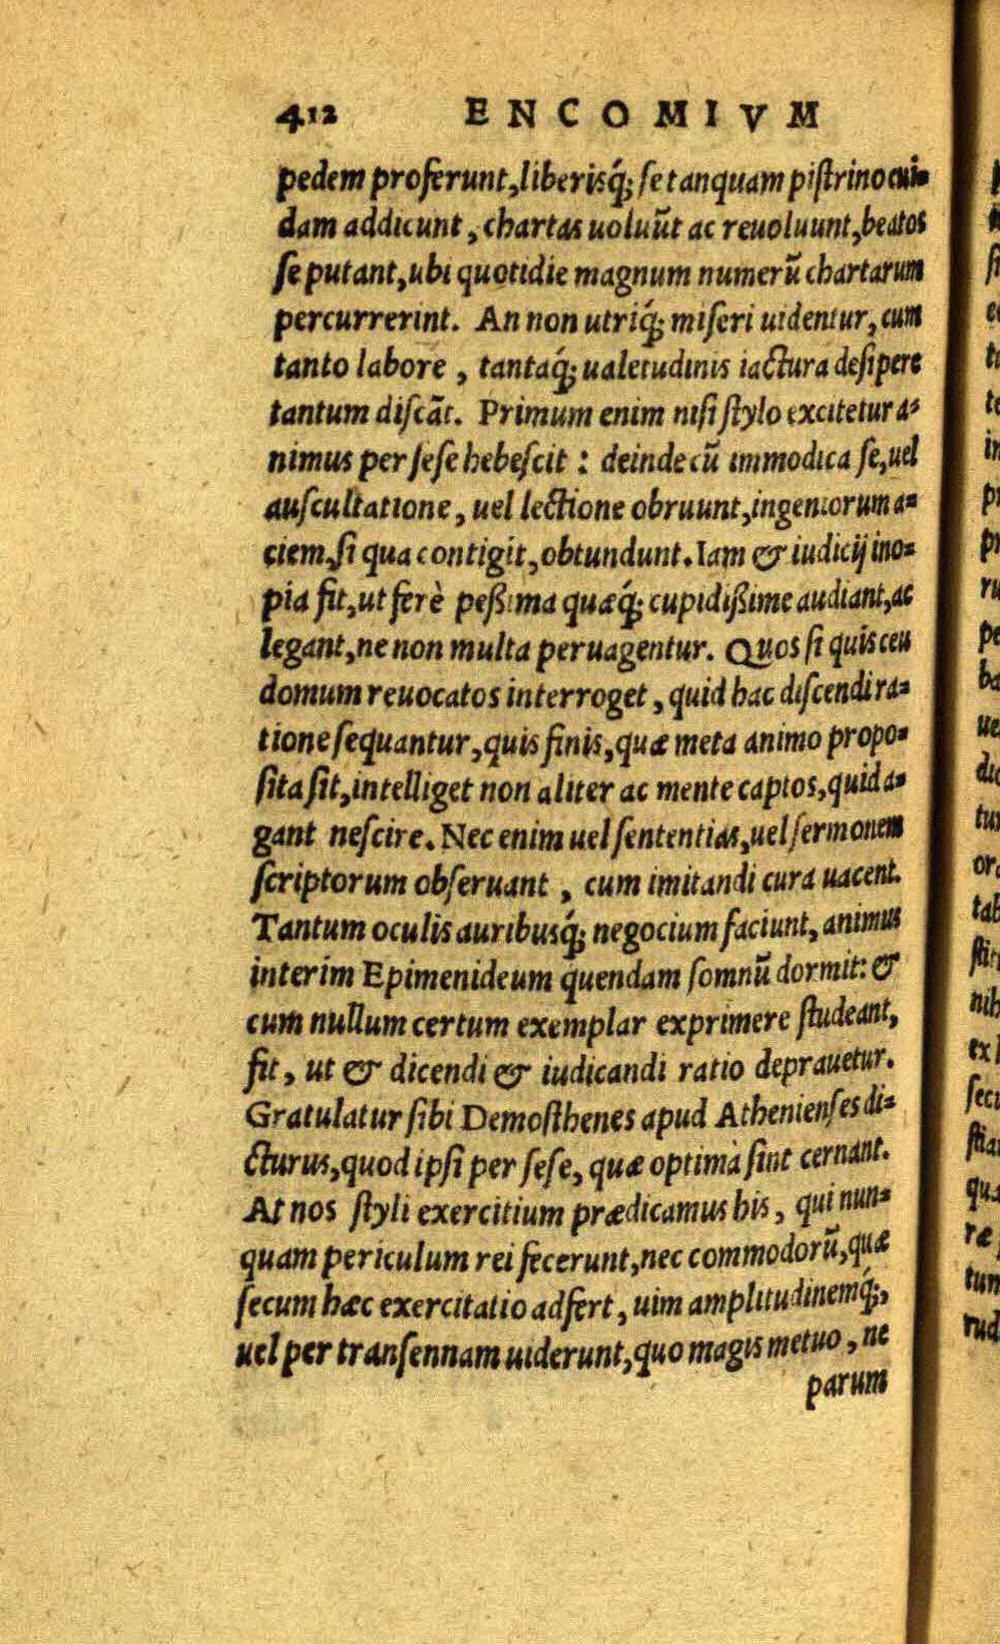 412 ENCOMIVM
pedem proferunt, liberisq́; se tanquam pistrino cui=
dam addicunt, chartas uoluūt ac reuoluunt, beatos
se putant, ubi quotidie magnum numerū chartarum
percurrerint. An non utriq́; miseri uidentur, cum
tanto labore, tantaq́; ualetudinis iactura desipere
tantum discāt. Primum enim nisi stylo excitetur a=
nimus per sese hebescit: deinde cū immodica se, uel
auscultatione, uel lectione obruunt, ingeniorum a=
ciem, si qua contigit, obtundunt. Iam & iudicij ino=
pia fit, ut ferè peßima quæq́; cupidißime audiant, ac
legant, ne non multa peruagentur. Quos si quis ceu
domum reuocatos interroget, quid hac discendi ra=
tione sequantur, quis finis, quæ meta animo propo=
sita sit, intelliget non aliter ac mente captos, quid a=
gant nescire. Nec enim uel sententias, uel sermonem
scriptorum obseruant, cum imitandi cura uacent.
Tantum oculis auribusq́; negocium faciunt, animus
interim Epimenideum quendam somnū dormit: &
cum nullum certum exemplar exprimere studeant,
fit, ut & dicendi & iudicandi ratio deprauetur.
Gratulatur sibi Demosthenes apud Athenienses di=
cturus, quod ipsi per sese, quæ optima sint cernant.
At nos styli exercitium prædicamus his, qui nun=
quam periculum rei fecerunt, nec commodorū, quæ
secum hæc exercitatio adfert, uim amplitudinemq́;,
uel per transennam uiderunt, quo magis metuo, ne
parum